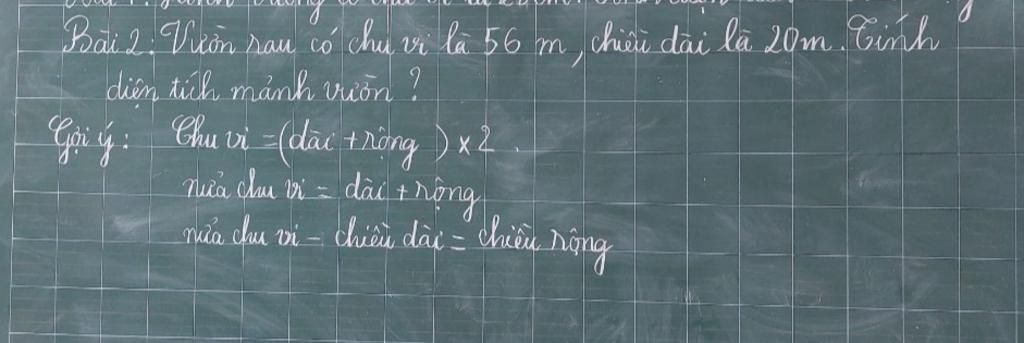 Bài 2: Vườn rau có chu vi là 56 m, chiều dài là 20m. Tính
diện tích mảnh vườn?
Gợi ý: Chu vi = (dài + rộng ) x 2.
nửa chu vi = dài + rộng
nửa chu vi - chiều dài = chiều rộng